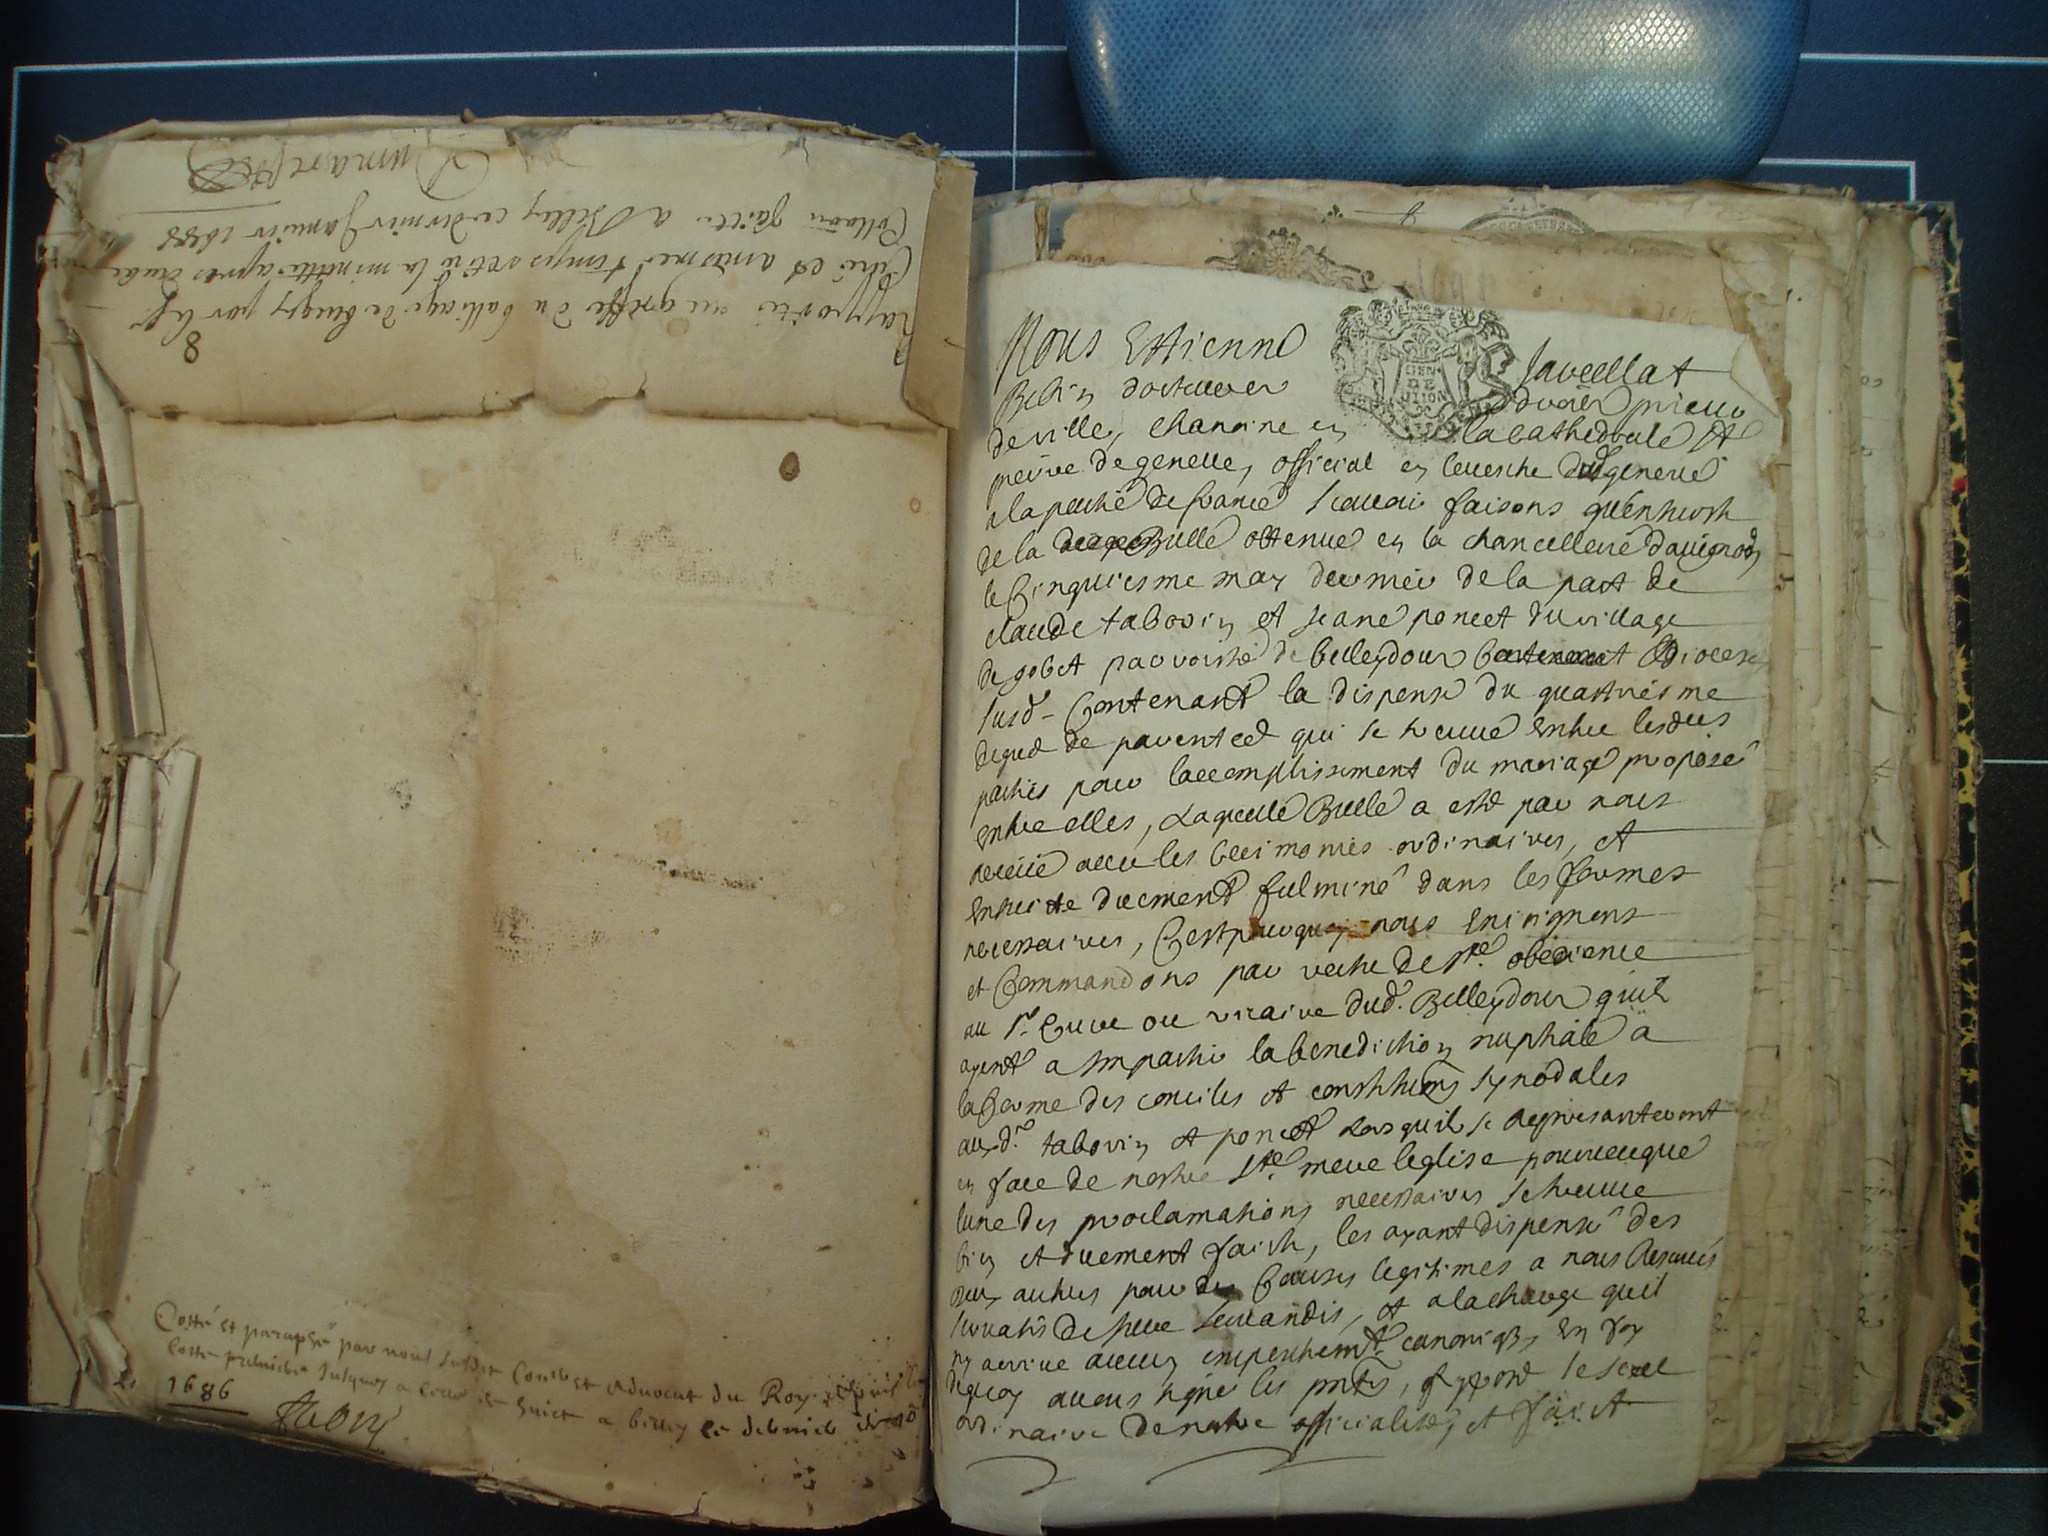 Rapporté au greffe du balliage de beugey par led sr
Curé et a mesme temps esté à la minutte apres due
Collaõn faitte a Belley ce dernier Januier 1688
Dumarest
8
Cotté et paraphé par nous susdit Conser et advocat du Roy depuis la
cotte premiere jusques a celle de huict a belley le dernier
1686
Nous Estienne Jaucellat
prieur
de ville, chanoine en la cathedrale St
pierre de geneue, official en leuesche dud geneue
a la partie de france scauoir faisons quen suitte
de la Bulle obtenue en la chancellerie dauignon
le Cinquiesme may dernier de la part de
claude tabouin et Jeane poncet du village
de gobet parroisse de belleydoux Diocese
susd. Contenant la dispense du quatriesme
degred de parented qui se treuue entre lesdites
parties pour laccomplissement du mariage proposé
entre elles, Laquelle Bulle a esté par nous
receüe auec les Ceremonies ordinaires, et
ensuitte duement fulminé dans les formes
necessaires, Cest pourquoy nous enioignons
et Commandons par vertu de ste. obedience
au sr. Curé ou vicaire dud. Belleydoux quil
ayent a Impartir la benediction nuptiale a
la forme des conciles et constitutions synodales
auxd.ts tabouin et poncet Lorsquils se representeront
en face de nostre ste. mere leglise pourueu que
lune des proclamations necessaires se treuue
bien et duement faicte, les ayant dispensé des
deux autres pour des Causes legitimes a nous Reseruées
seruatis de Jure seruandis, et a la charge quil
ny arriue aucun empeschemt. canonique, En foy
dequoy auons signé les pntes, et apposé le sceel
ordinaire de nostre officialité, et faict